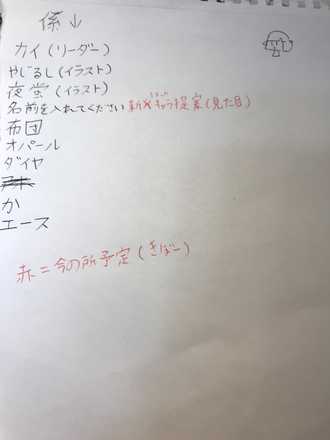 係↓
カイ(リーダー)
やじるし(イラスト)
夜蛍(イラスト)
名前を入れてください 新米キャラ提案(見た目)
布団
オパール
ダイヤ
か
エース
赤=今の所予定(きぼー)